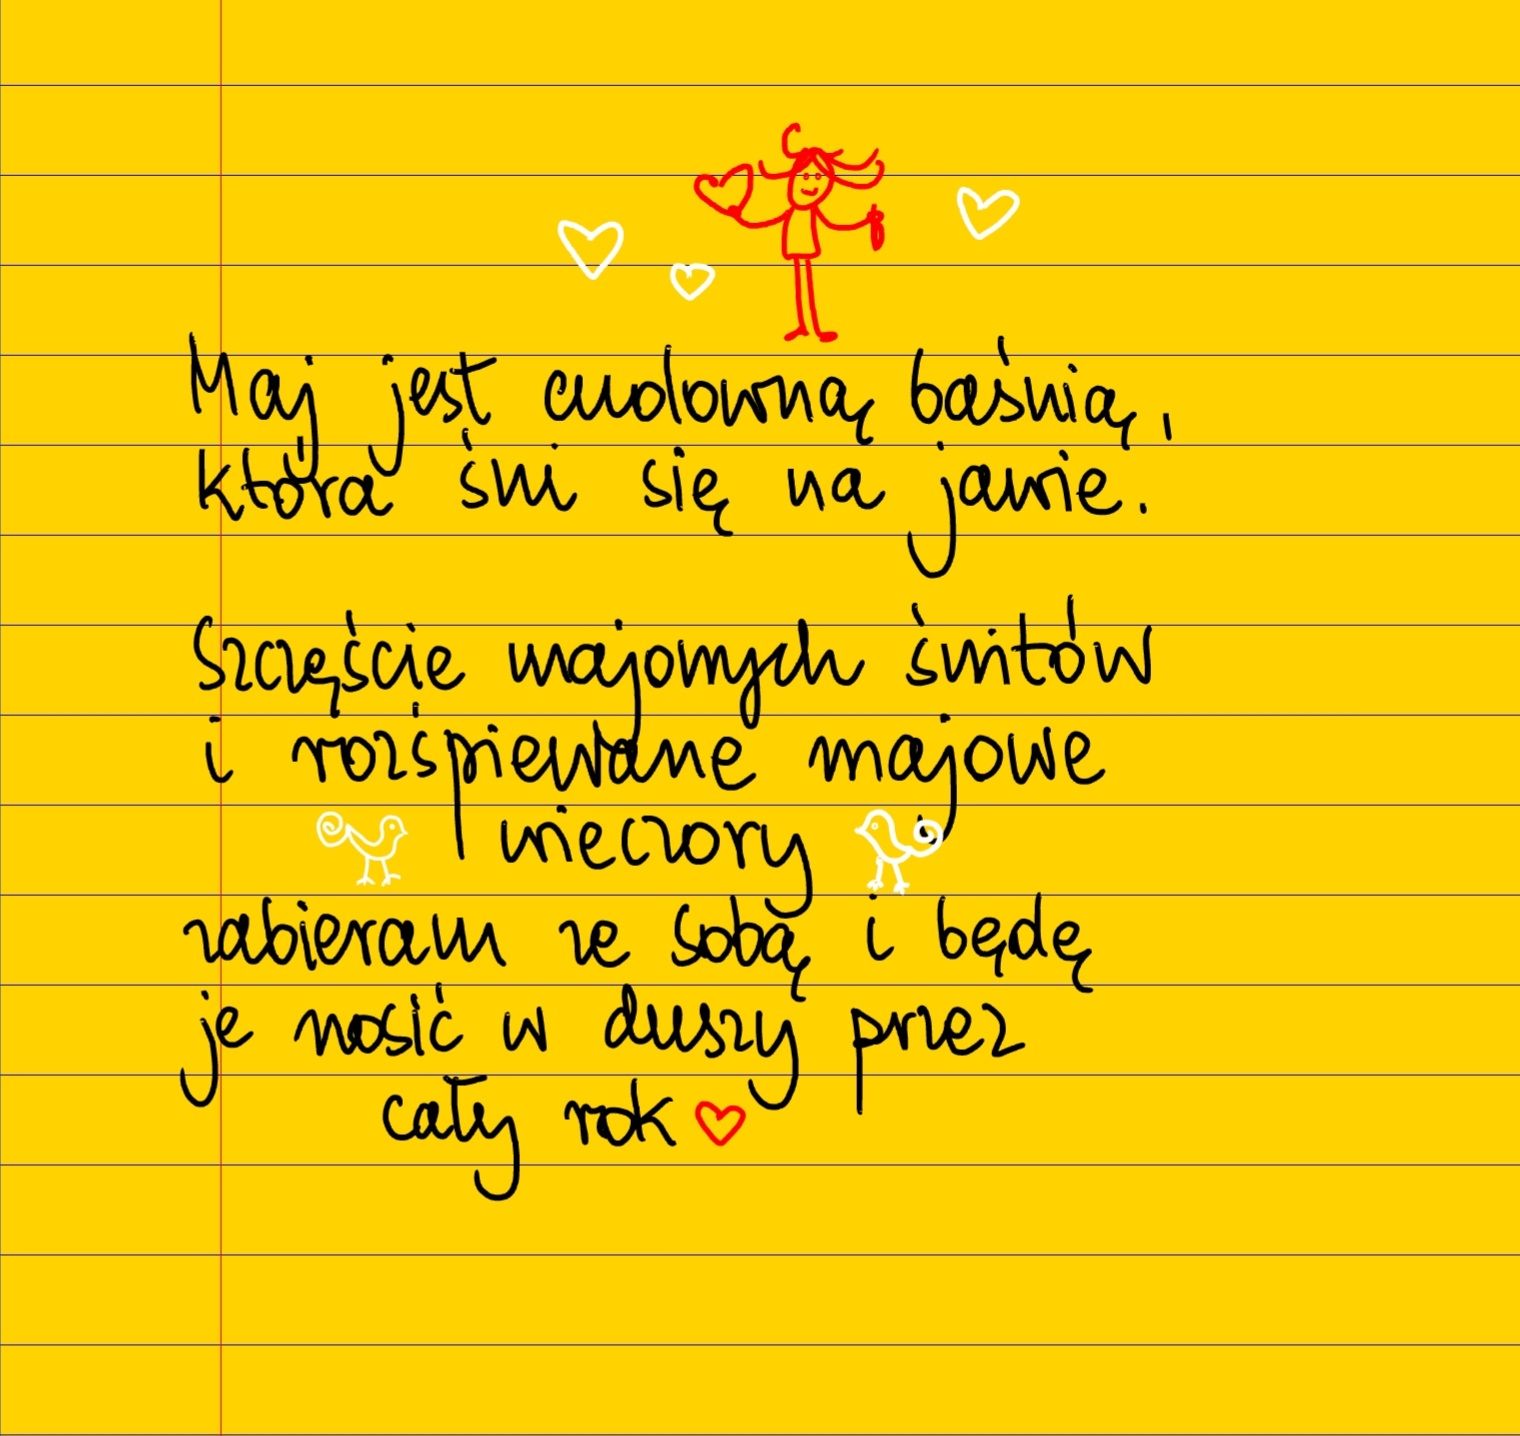 Maj jest cudowną baśnią,
która śni się na jawie.
Szczęście majowych świtów
i rozśpiewane majowe
wieczory
zabieram ze sobą i będę
je nosić w duszy przez
cały rok